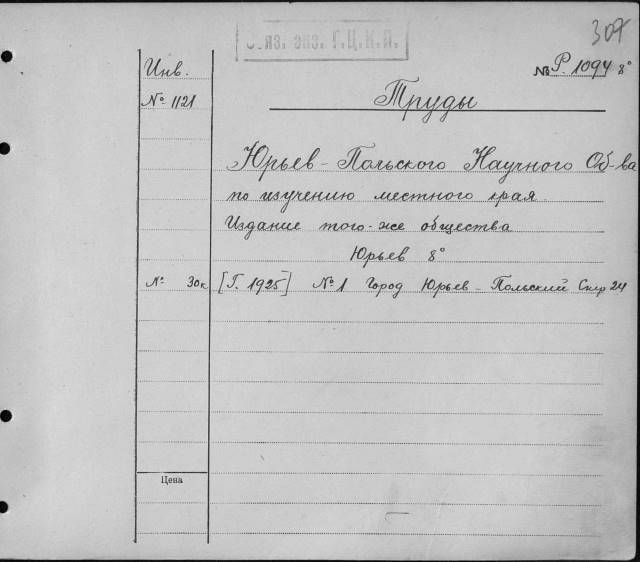 307
яз. экз. Г.Ц.К.П.
Инв.
№ Р. 1094 8°
№ 1121
Труды
Юрьев-Польского Научного Об-ва
по изучению местного края.
Издание того-же общества
Юрьев 8°
№ 30к [Г. 1925] № 1 Город Юрьев-Польский 24
Цена